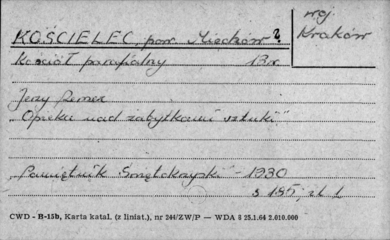 KOŚCIELEC, pow. Miechów?
woj. Kraków
Kościół parafialny 13 w.
Jerzy Remer
"Opieka nad zabytkami sztuki"
"Pamiętnik Świętokrzyski" - 1930
s 185, il 1
CWD - B-15b, Karta katal. (z liniat.), nr 244/ZW/P — WDA 8 25.1.64 2.010.000